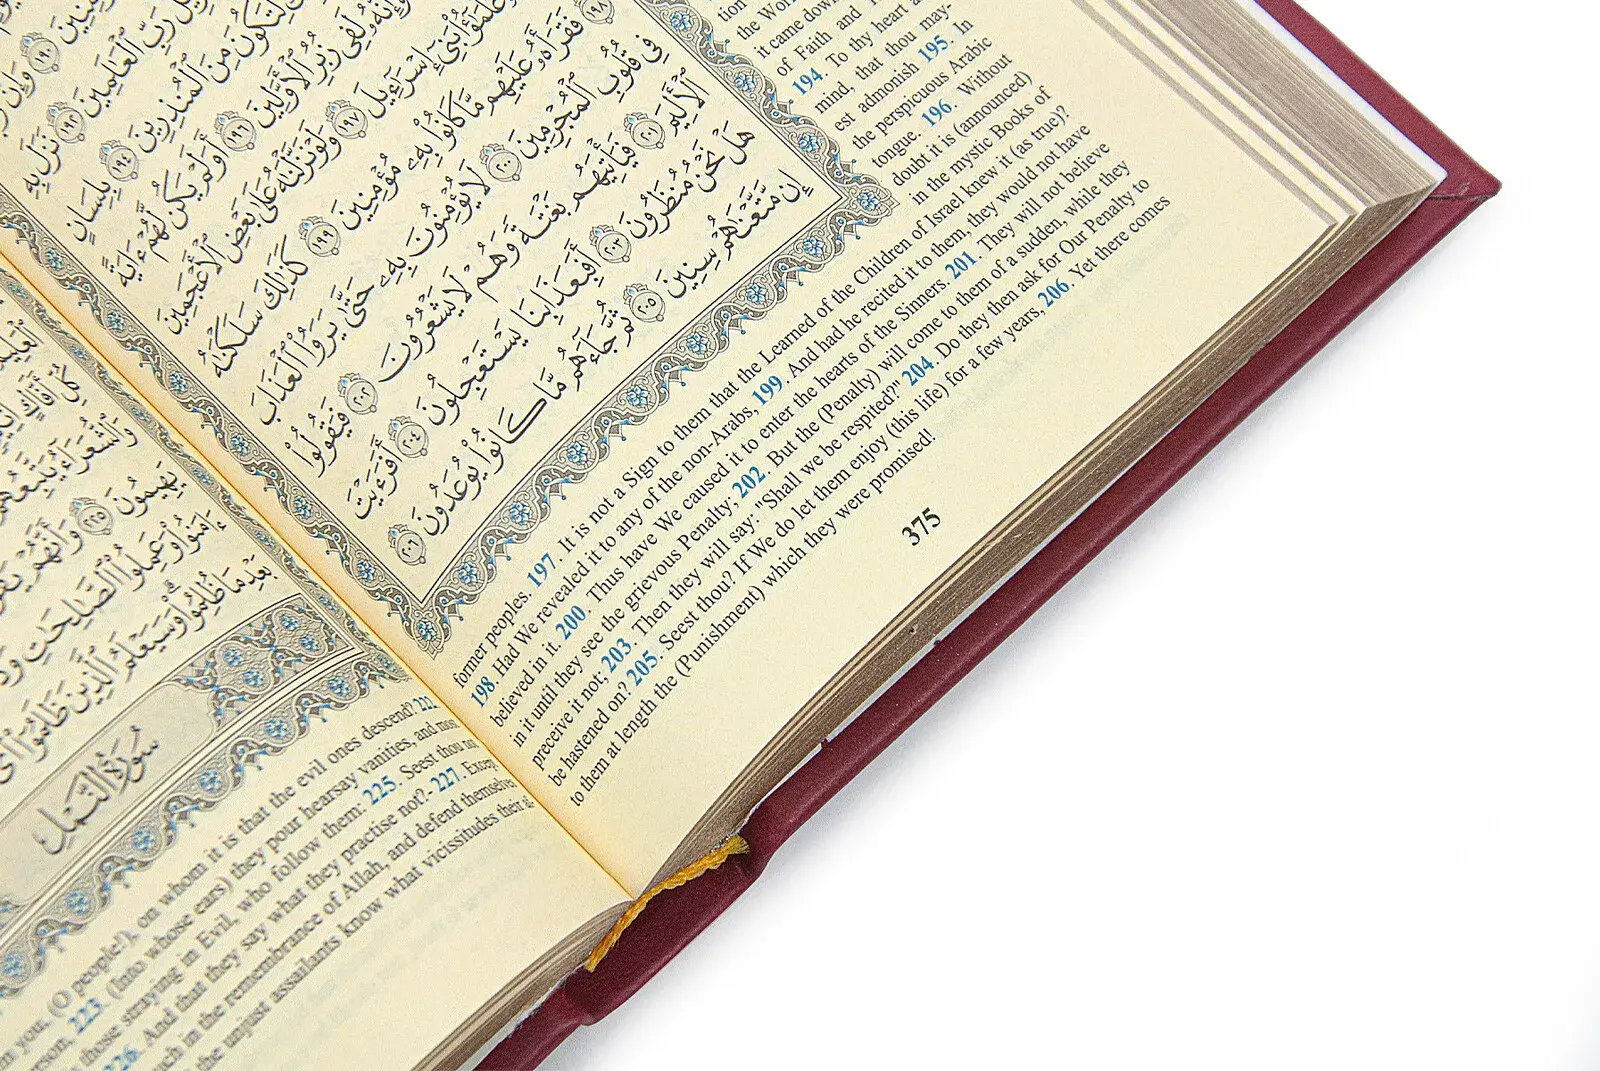 رَبِّ ٱلْعَٰلَمِينَ ١٩٢ نَزَلَ بِهِ
لِتَكُونَ مِنَ ٱلْمُنذِرِينَ ١٩٤ بِلِسَانٍ
وَإِنَّهُۥ لَفِى زُبُرِ ٱلْأَوَّلِينَ ١٩٦ أَوَلَمْ يَكُن لَّهُمْ ءَايَةً
بَنِىٓ إِسْرَٰٓءِيلَ ١٩٧ وَلَوْ نَزَّلْنَٰهُ عَلَىٰ بَعْضِ ٱلْأَعْجَمِينَ
١٩٨ فَقَرَأَهُۥ عَلَيْهِم مَّا كَانُوا۟ بِهِۦ مُؤْمِنِينَ ١٩٩ كَذَٰلِكَ سَلَكْنَٰهُ
فِى قُلُوبِ ٱلْمُجْرِمِينَ ٢٠٠ لَا يُؤْمِنُونَ بِهِۦ حَتَّىٰ يَرَوُا۟ ٱلْعَذَابَ
ٱلْأَلِيمَ ٢٠١ فَيَأْتِيَهُم بَغْتَةً وَهُمْ لَا يَشْعُرُونَ ٢٠٢ فَيَقُولُوا۟
هَلْ نَحْنُ مُنظَرُونَ ٢٠٣ أَفَبِعَذَابِنَا يَسْتَعْجِلُونَ ٢٠٤ أَفَرَءَيْتَ
إِن مَّتَّعْنَٰهُمْ سِنِينَ ٢٠٥ ثُمَّ جَآءَهُم مَّا كَانُوا۟ يُوعَدُونَ ٢٠٦
tion
the Wor
it came down
of Faith and
194. To thy heart a
mind, that thou may-
est admonish 195. In
the perspicuous Arabic
tongue. 196. Without
doubt it is (announced)
in the mystic Books of
former peoples. 197. It is not a Sign to them that the Learned of the Children of Israel knew it (as true)?
198. Had We revealed it to any of the non-Arabs, 199. And had he recited it to them, they would not have
believed in it. 200. Thus have We caused it to enter the hearts of the Sinners. 201. They will not believe
in it until they see the grievous Penalty; 202. But the (Penalty) will come to them of a sudden, while they
perceive it not; 203. Then they will say: "Shall we be respited?" 204. Do they then ask for Our Penalty to
be hastened on? 205. Seest thou? If We do let them enjoy (this life) for a few years, 206. Yet there comes
to them at length the (Punishment) which they were promised!
375
وَٱلشُّعَرَآءُ يَتَّبِعُهُمُ
يَهِيمُونَ ٢٢٥ وَأَنَّهُمْ
ءَامَنُوا۟ وَعَمِلُوا۟ ٱلصَّٰلِحَٰتِ
بَعْدِ مَا ظُلِمُوا۟ وَسَيَعْلَمُ ٱلَّذِينَ ظَلَمُوٓا۟
سُورَةُ النَّمْلِ
you, (O people!), on whom it is that the evil ones descend? 222
erson, 223. (Into whose ears) they pour hearsay vanities, and most
those straying in Evil, who follow them: 225. Seest thou not
226. And that they say what they practise not?- 227. Except
uch in the remembrance of Allah, and defend themselves
the unjust assailants know what vicissitudes their af-